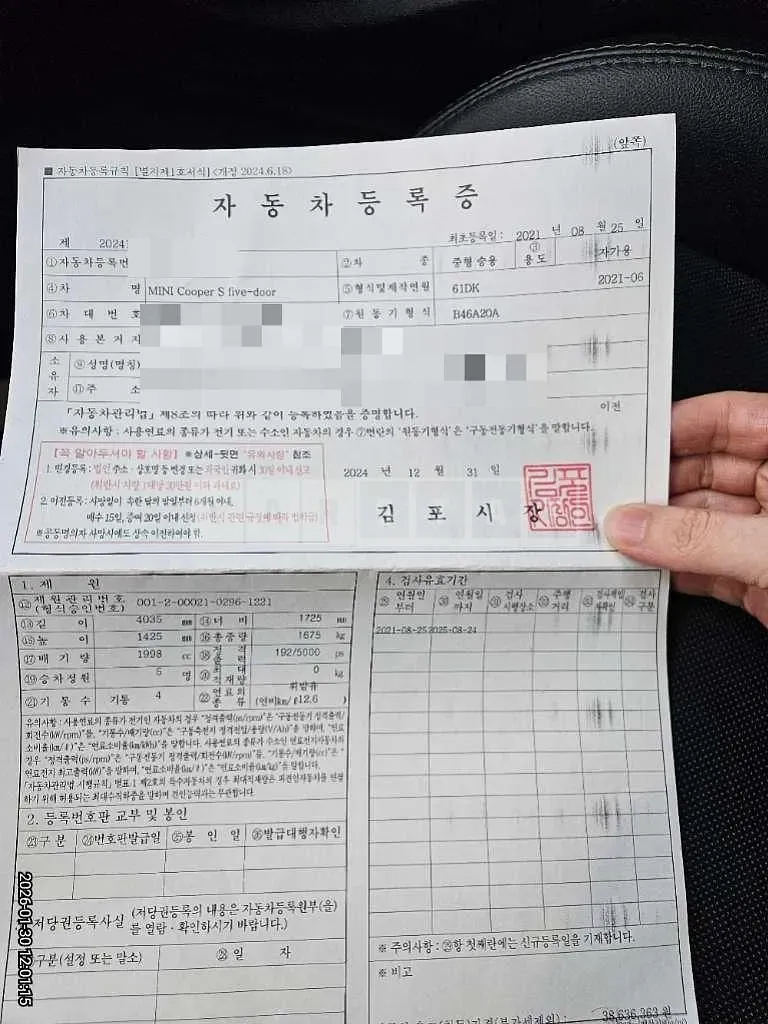 ■ 자동차등록규칙 [별지제1호서식] <개정 2024.6.18>
(앞쪽)
자동차등록증
제 2024
최초등록일 : 2021 년 08 월 25 일
①자동차등록번
②차 종
중형 승용
③용도
자가용
④차 명
MINI Cooper S five-door
⑤형식및제작연월
61DK
2021-06
⑥차대번호
⑦원동기형식
B46A20A
⑧사용본거지
소유자
⑨성명(명칭)
⑪주 소
「자동차관리법」 제8조의 따라 위와 같이 등록하였음을 증명합니다.
이전
※유의사항 : 사용연료의 종류가 전기 또는 수소인 자동차의 경우 ⑦번란의 '원동기형식'은 '구동전동기형식'을 말합니다.
[꼭 알아두셔야 할 사항] ※상세-뒷면 "유의사항" 참조
1. 변경등록 : 법인 주소·상호명 등 변경 또는 외국인 귀화 시 30일 이내 신고
2. 이전등록 : 사망일이 속한 달의 말일부터 6개월 이내,
매수 15일, 증여 20일 이내 신청
※공동명의자 사망시에도 상속 이전하여야 함.
2024 년 12 월 31 일
김포시장
1. 제 원
⑫제원관리번호
(형식승인번호)
001-2-00021-0296-1221
⑬길 이 4035 mm ⑭너 비 1725 mm
⑮높 이 1425 mm ⑯총중량 1675 kg
⑰배기량 1998 cc ⑱정격출력 192/5000 ps
⑲승차정원 5 명 ⑳최대적재량 0 kg
㉑기통수 기통 4 ㉒연료의종류 휘발유
(연비km/ℓ12.6 )
유의사항 : 사용연료의 종류가 전기인 자동차의 경우 "정격출력(ps/rpm)"은 "구동전동기 정격출력/
회전수(kW/rpm)"를, "기통수/배기량(cc)"은 "구동축전지 정격전압/용량(V/Ah)"을 말하며, "연료
소비율(km/ℓ)"은 "연료소비율(km/kWh)"을 말합니다. 사용연료의 종류가 수소인 연료전지자동차의
경우 "정격출력(ps/rpm)"은 "구동전동기 정격출력/회전수(kW/rpm)"를, "기통수/배기량(cc)"은 "
연료전지 최고출력(kW)"을 말하며, "연료소비율(km/ℓ)"은 "연료소비율(km/kg)"을 말합니다.
「자동차관리법 시행규칙」 별표 1 제2호의 특수자동차의 경우 최대적재량은 피견인자동차를 연결
하기 위해 허용되는 최대수직하중을 말하며 견인능력과는 무관합니다.
2. 등록번호판 교부 및 봉인
㉓구 분 ㉔번호판발급일 ㉕봉 인 일 ㉖발급대행자확인
저당권등록사실 (저당권등록의 내용은 자동차등록원부(을)
를 열람·확인하시기 바랍니다.)
구분(설정 또는 말소) ㉘일 자
4. 검사유효기간
연월일부터 연월일까지 검사시행장소 주행거리 검사책임자확인 검사구분
2021-08-25 2025-08-24
※ 주의사항 : ㉙항 첫째란에는 신규등록일을 기재합니다.
※ 비고
38,636,363 원
2026-01-30 12:01:15